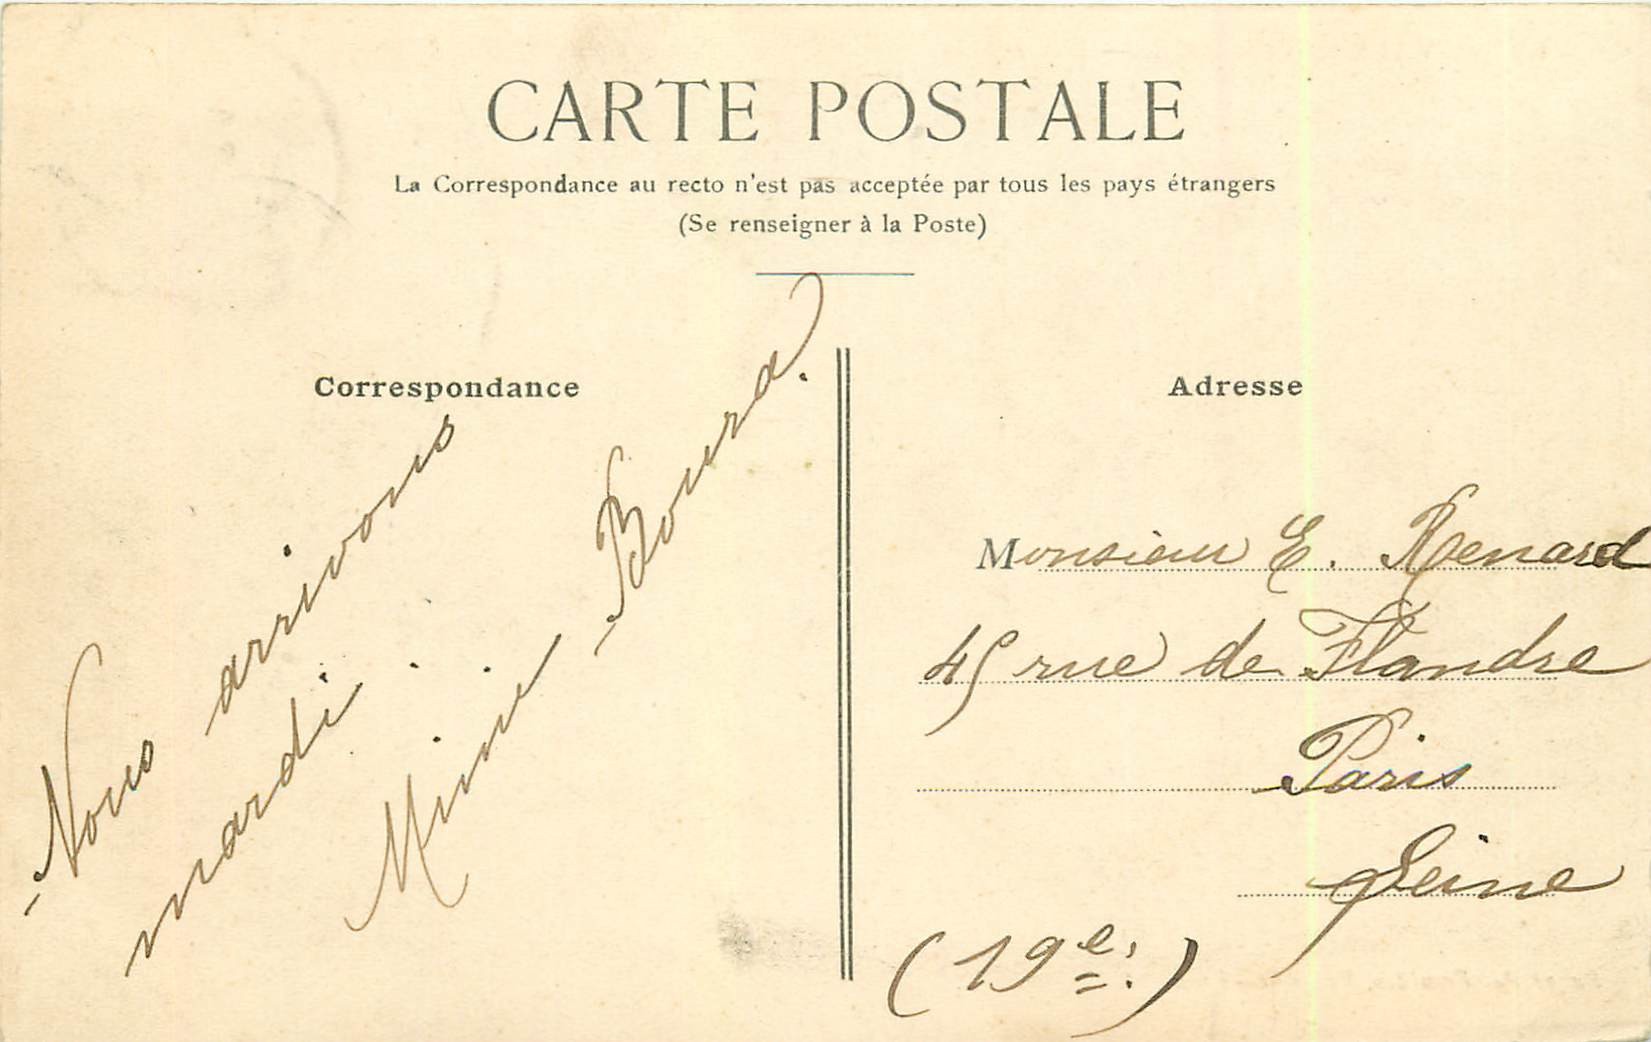 CARTE POSTALE
La Correspondance au recto n'est pas acceptée par tous les pays étrangers
(Se renseigner à la Poste)
Correspondance
Nous arrivons
mardi.
Adresse
Monsieur E. Renard
45 rue de Flandre
Paris
Seine
(19e:)